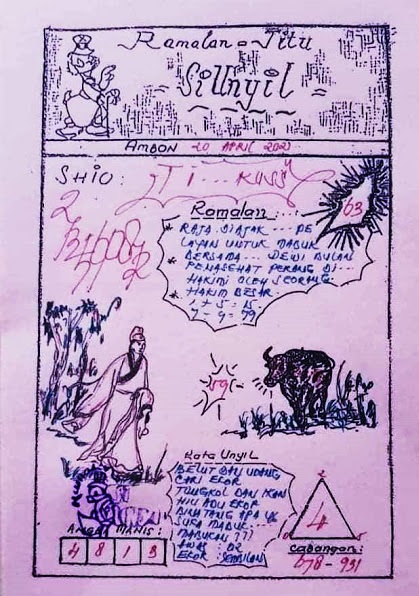 Ramalan = Jitu
SiUnyil
AMBON 20 APRIL 202
SHIO:
Ramalan
63
* RAJA DIAJAK ... PE
LAYAN UNTUK MABUK
* BERSAMA ... DEWI BULAN
PENASEHAT PERANG DI-
HAKIMI OLEH SEORANG
* HAKIM BESAR.
1 + 5 = 15
7 - 9 = 79
59
Kata Unyil
BELUT DAN UDANG
CARI EKOR
TONGKOL DAN IKAN
HIU ADU EKOR
BINATANG APA YG
SUKA MABUK
MABUKAN ???
AWAS : 02
EKOR : SEMBILAN
ANGKA MANIS :
4 8 1 3
2
4
0 5
Cabangan:
678 - 931